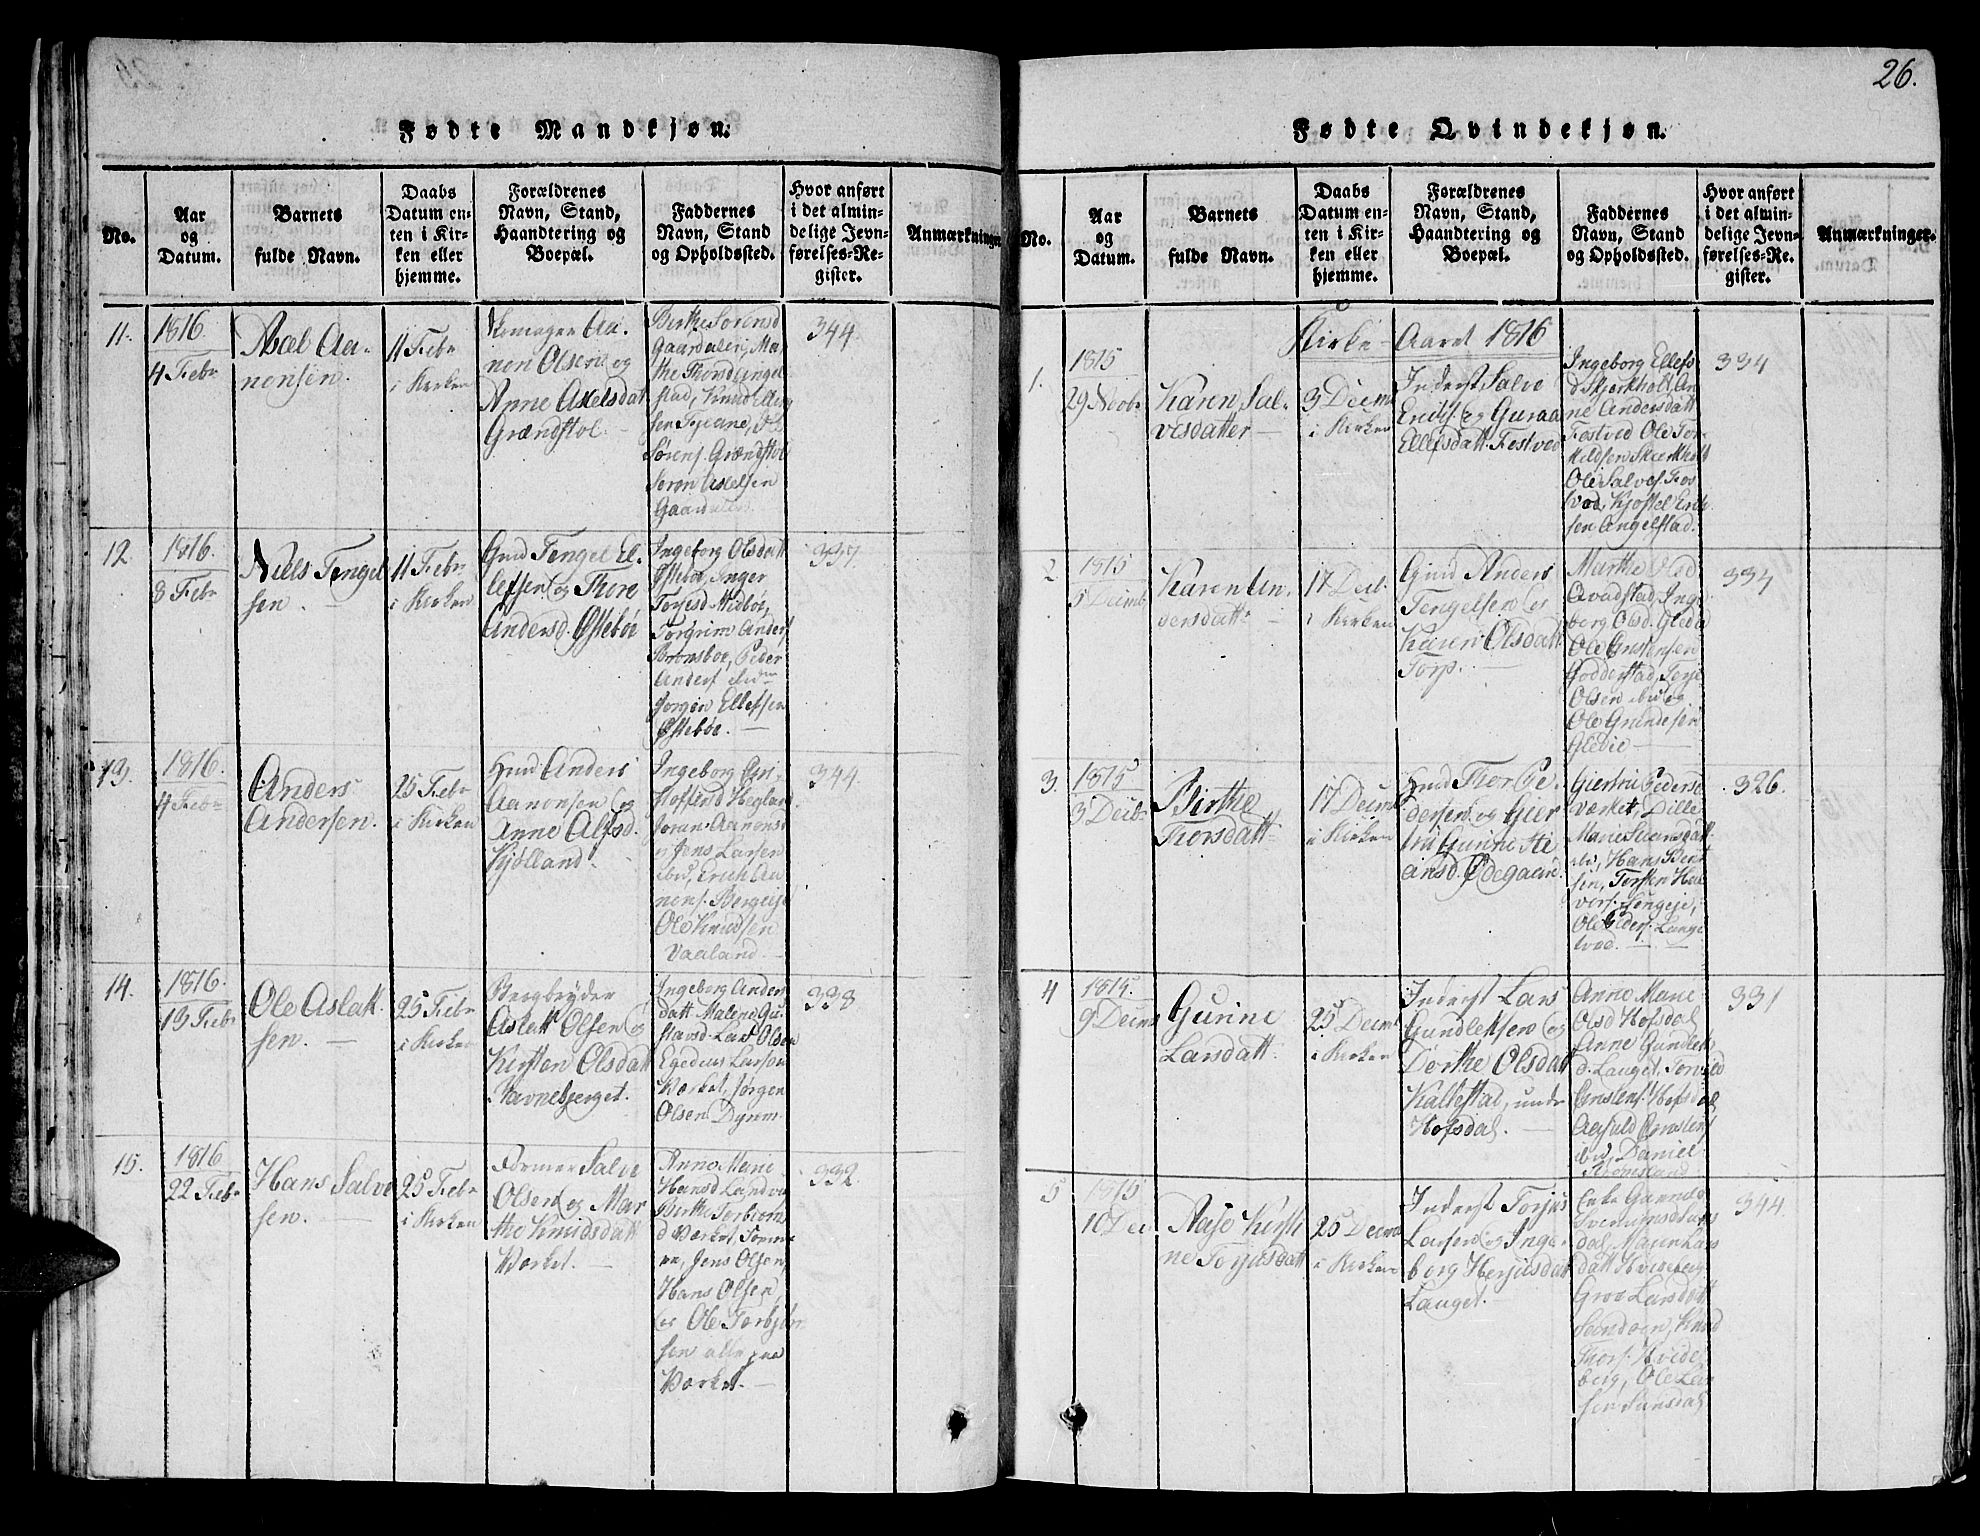 26.
Fødte Mandkjøn.
No.
Aar
og
Datum.
Barnets
fulde Navn.
Daabs
Datum en-
ten i Kir-
ken eller
hjemme.
Forældrenes
Navn, Stand,
Haandtering og
Boepæl.
Faddernes
Navn, Stand
og Opholdssted.
Hvor anført
i det almin-
delige Jevn-
førelses-Re-
gister.
Anmærkninger
11.
1816.
4 Febr
Axel Aa-
nonsen.
11 Febr
i Kirken
Aa-
non Olsen og
Anne Axelsdat
Grændstol
Birthe Sorensd
Gaardalen, Ma-
the
stad, Knud
sen
Sörens. Grændstol
Sörön Axelsen
Gaardalen
344
12.
1816.
8 Febr
Niels Tengel
sen.
11 Febr
i Kirken
Gmd Tengel El-
lefsen og Thore
Andersd. Østebøe
Ingeborg Olsdatt
Østebøe, Inger
Torjesd Midböe,
Torgrim Anders
Brönsboe, Peder
Anders
Jorgön Ellefsen
Østeböe.
337.
13.
1816.
4 Febr
Anders
Andersen.
25 Febr
i Kirken
Gmd Anders
Aanonsen og
Anne Alfsd.
Kjølland.
Ingeborg Cri-
stoffersd Hegland
Joran Aanons
Jens Larsen
ibid, Erich Aa
nens.
Ole Knudsen
Vaaland.
344
14.
1816.
13 Febr
Ole Aslatt
sen.
25 Febr
i Kirken
Bergbryder
Aslatt Olsen og
Kirsten Olsdatt
Ravnebjerget.
Ingeborg Anders
datt Malene Gu
stavsd. Lars Olsen
Egedeus Larsen
Værket, Jörgen
Olsen
338
15.
1816
22 Febr
Hans Salve
sen.
25 Febr
i Kirken
Former Salve
Olsen og Mar
the Knudsdatt
Værket.
Anne Marie
Hansd
Birthe Torbiorns
d Værket
Jens Olsen
Hans Olsen
og Ole Torbjør
sen alle paa
Værket.
332.
Fødte Qvindekjøn.
No.
Aar
og
Datum.
Barnets
fulde Navn.
Daabs
Datum en-
ten i Kir-
ken eller
hjemme.
Forældrenes
Navn, Stand,
Haandtering og
Boepæl.
Faddernes
Navn, Stand
og Opholdssted.
Hvor anført
i det almin-
delige Jevn-
førelses-Re-
gister.
Anmærkninger.
Kirke-Aaret 1816
1.
1815
29 Novbr
Karen Sal-
vesdatter
3 Decmb
i Kirken
Inderst Salve
Erichs. og Guraa
Ellefsdatt. Fostved
Ingeborg Ellefs
d Skjerkholt An
ne Andersdatt
Fostved Ole Tor
kildsen Skierkholt
Ole Salves. Fos
tved, Kjöstel Erich
sen Angelstad.
334
2
1815
5 Decmb
Karen An-
dersdatt
17 Decb.
i Kirken
Gmd Anders
Tengelsen og
Karen Olsdatt
Torp.
Marthe Olsd
Qvadstad, Inge
berg Olsd. Gledie
Ole
Godderstad, Torje
Olsen ibid og
Ole Gundersen
Gledie
334
3.
1815
3 Decbr
Birthe
Thorsdatt.
17 Decmb
i Kirken
Gmd Thor Pe-
dersen og Gier
tru Gurine Ste
ansd. Ødegaard.
Giertru Peders
værket, Lille
Marie Steansdatt
ibid, Hans Bent
sen, Torsten Hal
vors.
Ole Peders. Lange
tved.
326.
4
1815.
9 Decmb
Gunne
Larsdatt.
25 Decmb
i Kirken
Inderst Lars
Gundleksen og
Dorthe Olsdatt
Kallestad, under
Hofsdal.
Anne Marie
Olsd Hofsdal
Anne Gundlek
d. Lauget. Torvild
Hofsdal
ibid, Daniel
331
5
1815
10 Dec
Aase Kirsti
ne Torjusdatt
25 Decmb
i Kirken
Inderst Torjus
Larsen og Inge-
borg Herjusdatt
Lauget.
Enke
dal, Maren Lars
datt Hvideberg
Groe Larsdatt
Knud
Thors. Hvide
berg, Ole Lar
sen Sunsdal
344